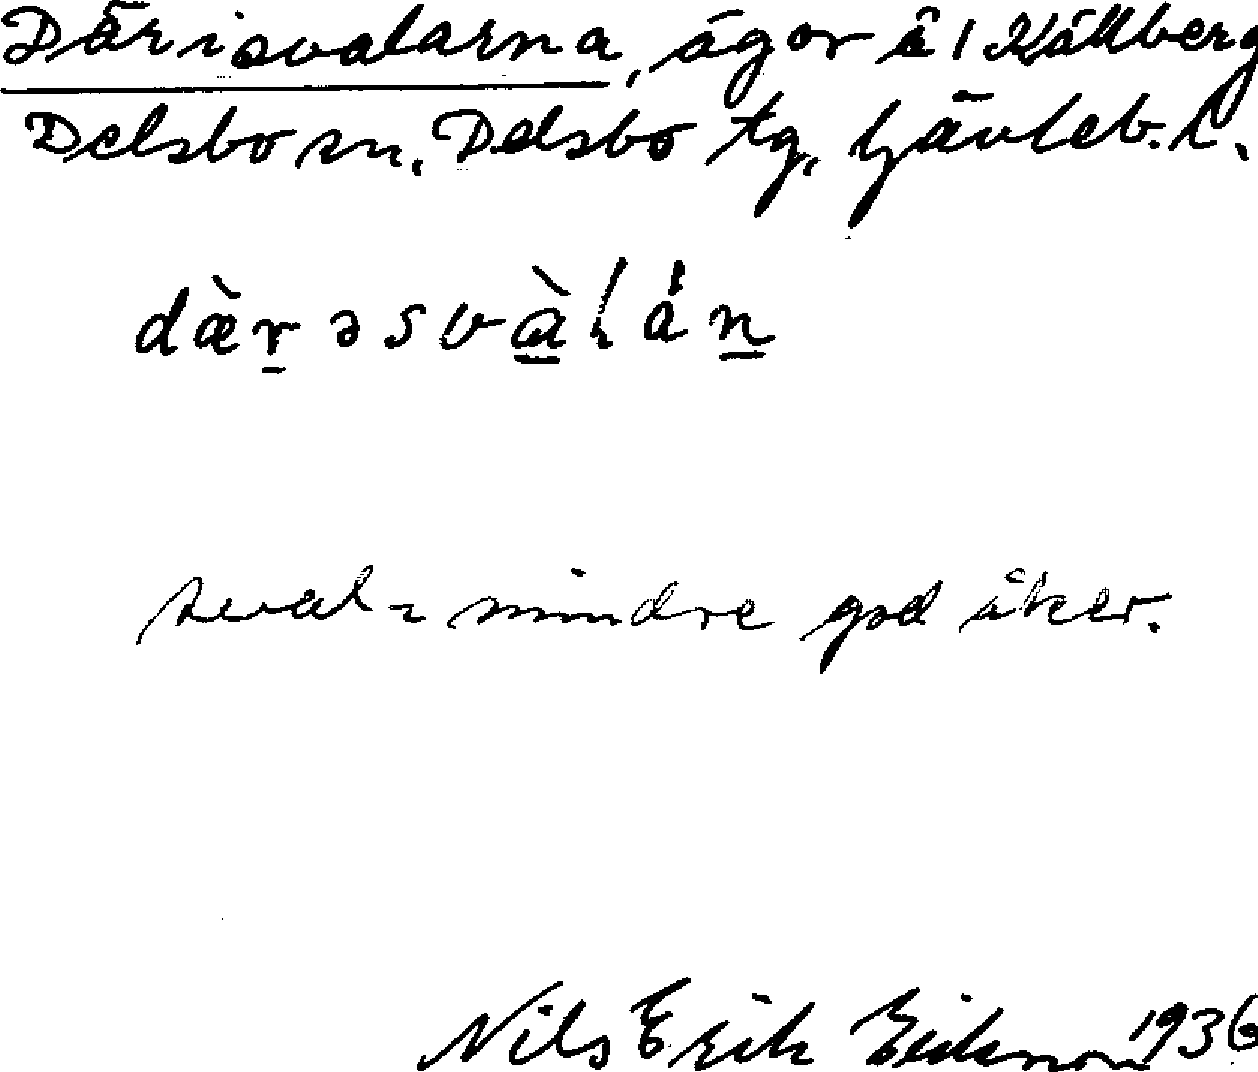 Därisvalarna, ägor å 1 Källberg
Delsbo sn, Delsbo tg, Gävleb. l.
dæ̀r̠əsvà̠lån̠
sval = mindre god åker.
Nils Erik Eriksson 1936